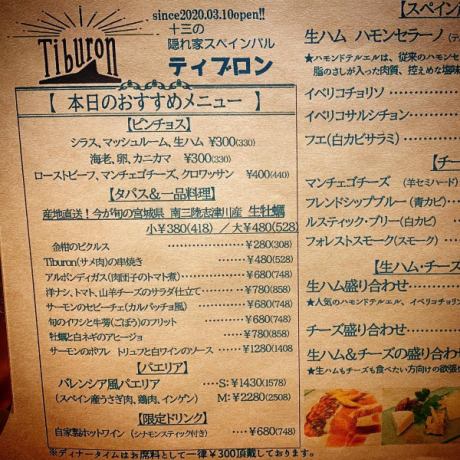 Tiburon
since2020.03.10open!!
十三の
隠れ家スペインバル
ティブロン
【 本日のおすすめメニュー 】
【ピンチョス】
シラス、マッシュルーム、生ハム ¥300(330)
海老、卵、カニカマ ¥300(330)
ローストビーフ、マンチェゴチーズ、クロワッサン ¥400(440)
【タパス&一品料理】
産地直送!今が旬の宮城県 南三陸志津川産 生牡蠣
小¥380(418) /大¥480(528)
金柑のピクルス ‥‥‥‥‥‥‥‥¥280(308)
Tiburon(サメ肉)の串焼き ‥‥‥‥‥‥‥‥¥480(528)
アルボンディガス(肉団子のトマト煮)‥‥‥‥‥‥¥680(748)
洋ナシ、トマト、山羊チーズのサラダ仕立て‥‥‥‥¥780(858)
サーモンのセビーチェ(カルパッチョ風)‥‥‥‥¥680(748)
旬のイワシと牛蒡(ごぼう)のフリット ‥‥‥‥¥680(748)
牡蠣と白ネギのアヒージョ ‥‥‥‥‥‥¥780(858)
サーモンのポワレ トリュフと白ワインのソース ‥‥¥1280(1408)
【パエリア】
バレンシア風パエリア ‥‥S: ¥1430(1578)
(スペイン産うさぎ肉、鶏肉、インゲン) M: ¥2280(2508)
【限定ドリンク】
自家製ホットワイン (シナモンスティック付き) ‥‥¥680(748)
※ディナータイムはお席料として一律¥300頂戴しております。
【スペイン
生ハム ハモンセラーノ
★ハモンドテルエルは、従来のハモンセ
脂のさしが入った肉質、控えめな塩味
イベリコチョリソ ‥‥‥‥
イベリコサルシチョン ‥‥‥‥
フエ(白カビサラミ) ‥‥‥‥
【チー
マンチェゴチーズ (羊セミハード)
フレンドシップブルー(青カビ)
ルスティック・ブリー(白カビ)
フォレストスモーク(スモーク)
【生ハム・チーズ
生ハム盛り合わせ ‥‥‥‥
★人気のハモンドテルエル、イベリコチョリソ
チーズ盛り合わせ ‥‥‥‥
生ハム&チーズの盛り合わせ
★生ハムもチーズも食べたい方向けの欲張